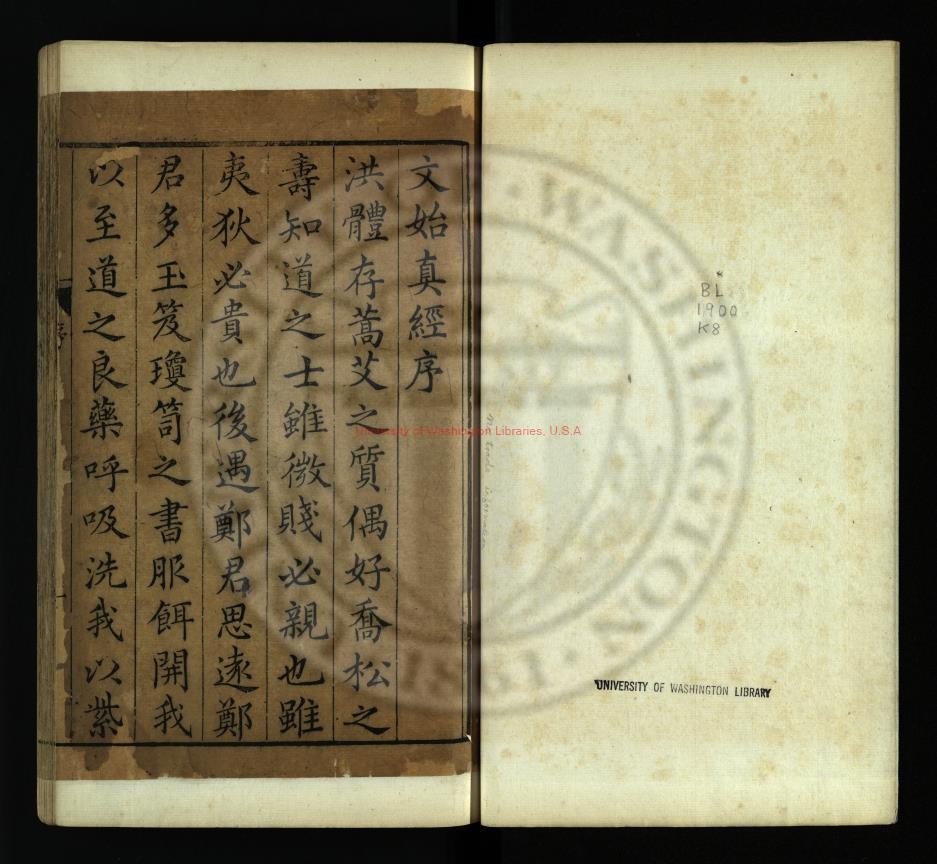 文始真經序
洪體存蒿艾之質偶好喬松之
壽知道之士雖微賤必親也雖
夷狄必貴也後遇鄭君思遠鄭
君多玉笈瓊笥之書服餌開我
以至道之良藥呼吸洗我以紫
序
BL
1900
K8
UNIVERSITY OF WASHINGTON LIBRARY
University of Washington Libraries, U.S.A
WASHINGTON